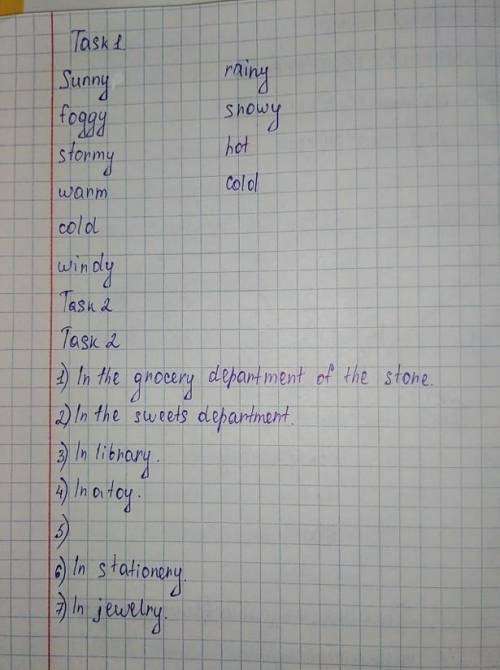 Task 1
Sunny rainy
foggy snowy
stormy hot
warm cold
cold
windy
Task 2
Task 2
1) In the grocery department of the store.
2) In the sweets department.
3) In library.
4) In a toy.
5)
6) In stationery.
7) In jewelry.